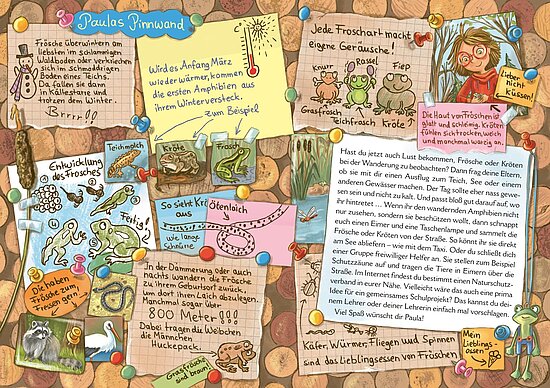 Paulas Pinnwand
Frösche überwintern am
liebsten im schlammigen
Waldboden oder verkriechen
sich im schmoddrigen
Boden eines Teichs.
Da fallen sie dann
in Kältestarre und
trotzen dem Winter.
Brrr!!
Wird es Anfang März
wieder wärmer, kommen
die ersten Amphibien aus
ihrem Winterversteck.
zum Beispiel
Teichmolch
Kröte
Frosch
Entwicklung
des Frosches
Fertig!
So sieht Krötenlaich
aus
wie lange
Schnüre
Die haben
Frösche zum
Fressen gern!
In der Dämmerung oder auch
nachts wandern die Frösche
zu ihrem Geburtsort zurück,
um dort ihren Laich abzulegen.
Manchmal sogar über
800 Meter!!!
Dabei tragen die Weibchen
die Männchen
Huckepack.
Grasfrösche
sind braun!
Jede Froschart macht
eigene Geräusche!
Knurr
Rassel
Fiep
Grasfrosch
Teichfrosch
Kröte
Lieber
nicht
küssen!
Die Haut von Fröschen ist
glatt und schleimig. Kröten
fühlen sich trocken, weich
und manchmal warzig an.
Hast du jetzt auch Lust bekommen, Frösche oder Kröten
bei der Wanderung zu beobachten? Dann frag deine Eltern,
ob sie mit dir einen Ausflug zum Teich, See oder einem
anderen Gewässer machen. Der Tag sollte eher nass gewe-
sen sein und nicht zu kalt. Und passt bloß gut darauf auf, wo
ihr hintretet … Wenn ihr den wandernden Amphibien nicht
nur zusehen, sondern sie beschützen wollt, dann schnappt
euch einen Eimer und eine Taschenlampe und sammelt die
Frösche oder Kröten von der Straße. So könnt ihr sie direkt
am See abliefern – wie mit dem Taxi. Oder du schließt dich
einer Gruppe freiwilliger Helfer an. Sie stellen zum Beispiel
Schutzzäune auf und tragen die Tiere in Eimern über die
Straße. Im Internet findest du bestimmt einen Naturschutz-
verband in eurer Nähe. Vielleicht wäre das auch eine prima
Idee für ein gemeinsames Schulprojekt? Das kannst du dei-
nem Lehrer oder deiner Lehrerin einfach mal vorschlagen.
Viel Spaß wünscht dir Paula!
Käfer, Würmer, Fliegen und Spinnen
sind das Lieblingsessen von Fröschen
Mein
Lieblings-
essen